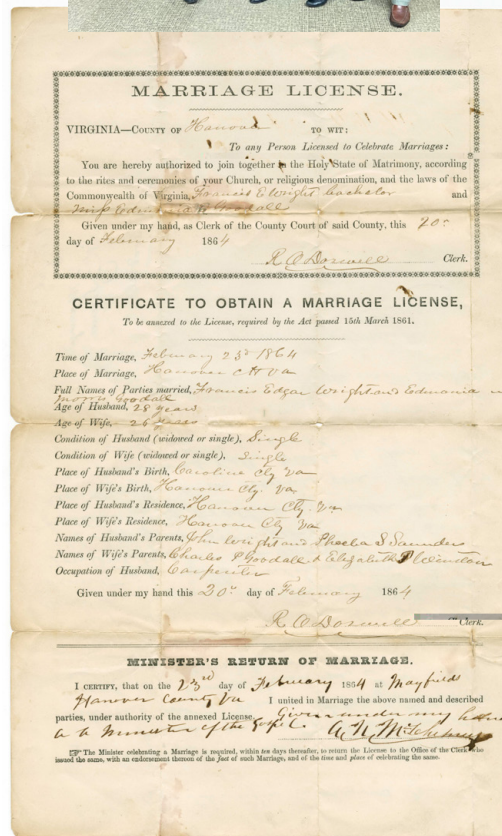 MARRIAGE LICENSE.
VIRGINIA—COUNTY OF Hanover TO WIT:
To any Person Licensed to Celebrate Marriages:
You are hereby authorized to join together in the Holy State of Matrimony, according
to the rites and ceremonies of your Church, or religious denomination, and the laws of the
Commonwealth of Virginia, Francis E Wright bachelor and
Miss Goodall
Given under my hand, as Clerk of the County Court of said County, this 20th
day of February 1864
R O Doswell Clerk.
CERTIFICATE TO OBTAIN A MARRIAGE LICENSE,
To be annexed to the License, required by the Act passed 15th March 1861.
Time of Marriage, February 23d 1864
Place of Marriage, Hanover C H Va
Full Names of Parties married, Francis Edgar Wright and Edmonia
Morris Goodall
Age of Husband, 28 years
Age of Wife, 26 years
Condition of Husband (widowed or single), Single
Condition of Wife (widowed or single), Single
Place of Husband's Birth, Caroline Cty Va
Place of Wife's Birth, Hanover Cty. Va
Place of Husband's Residence, Hanover Cty. Va
Place of Wife's Residence, Hanover Cty Va
Names of Husband's Parents, John Wright and S Saunders
Names of Wife's Parents, Charles P Goodall & Elizabeth P Winston
Occupation of Husband, Carpenter
Given under my hand this 20th day of February 1864
R O Doswell Clerk.
MINISTER'S RETURN OF MARRIAGE.
I CERTIFY, that on the 23rd day of February 1864 at Mayfield
Hanover County Va I united in Marriage the above named and described
parties, under authority of the annexed License. Given under my hand
as a Minister of the Gospel.
☞ The Minister celebrating a Marriage is required, within ten days thereafter, to return the License to the Office of the Clerk who
issued the same, with an endorsement thereon of the fact of such Marriage, and of the time and place of celebrating the same.